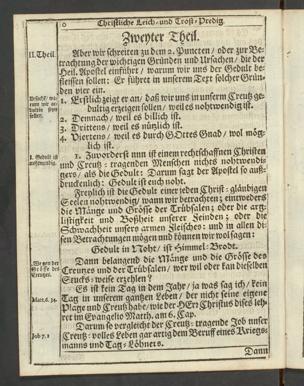 Christliche Leich- und Trost-Predig.
Zweyter Theil.
II. Theil.
Aber wir schreiten zu dem 2. Puncten / oder zur Be-
trachtung der wichtigen Gründen und Ursachen / die der
Heil. Apostel einführt / warum wir uns der Gedult be-
fleissen sollen: Er führet in unserem Text solcher Grün-
den vier ein.
1. Erstlich zeiget er an / daß wir uns in unserm Creutz ge-
dultig erzeigen sollen / weil es nohtwendig ist.
2. Demnach / weil es billich ist.
3. Drittens / weil es nützlich ist.
4. Viertens / weil es durch GOttes Gnad / wol mög-
lich ist.
1. Gedult ist
nohtwendig.
1. Zuvorderst nun ist einem rechtschaffnen Christen
und Creutz-tragenden Menschen nichts nohtwendi-
gers / als die Gedult: Darum sagt der Apostel so auß-
druckenlich: Gedult ist euch noht.
Freylich ist die Gedult einer jeden Christ-gläubigen
Seelen nohtwendig / wann wir betrachten / entweders
die Mänge und Grösse der Trübsalen; oder die arg-
listigkeit und Boßheit unserer Feinden; oder die
Schwachheit unsers armen Fleisches: und in allen di-
sen Betrachtungen mögen und können wir wol sagen:
Gedult in Noht / ist Himmel-Brodt.
Wegen der
Grösse des
Creutzes.
Dann belangend die Mänge und die Grösse des
Creutzes und der Trübsalen / wer wil oder kan dieselben
Stucks-weise erzehlen?
Es ist kein Tag in dem Jahr / ja was sag ich / kein
Tag in unserem gantzen Leben / der nicht seine eigene
Plage und Creutz habe / wie der HErr Christus dises leh-
ret im Evangelio Matth. am 6. Cap.
Matt. 6. 34.
Darum so vergleicht der Creutz-tragende Job unser
Creutz-volles Leben gar artig dem Beruff eines Kriegs-
manns und Tag-Löhners.
Job 7. 1
Dann